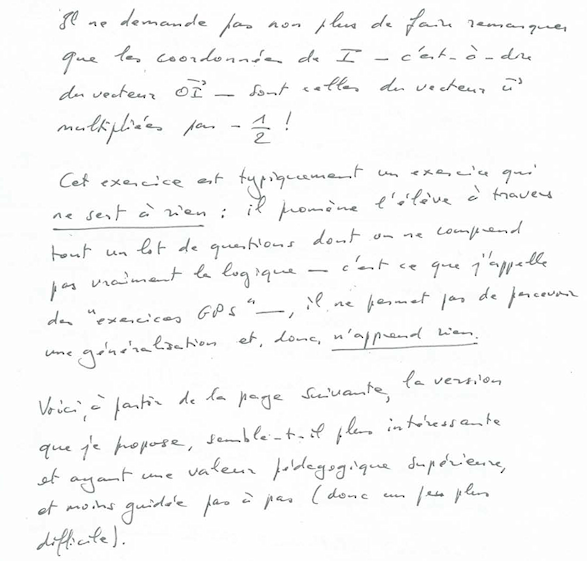 Il ne demande pas non plus de faire remarquer
que les coordonnées de I – c'est-à-dire
du vecteur OI – sont celles du vecteur u
multipliées par - 1/2 !
Cet exercice est typiquement un exercice qui
ne sert à rien : il promène l'élève à travers
tout un lot de questions dont on ne comprend
pas vraiment la logique – c'est ce que j'appelle
des "exercices GPS" –, il ne permet pas de percevoir
une généralisation et, donc, n'apprend rien.
Voici, à partir de la page suivante, la version
que je propose, semble-t-il plus intéressante
et ayant une valeur pédagogique supérieure,
et moins guidée pas à pas (donc un peu plus
difficile).